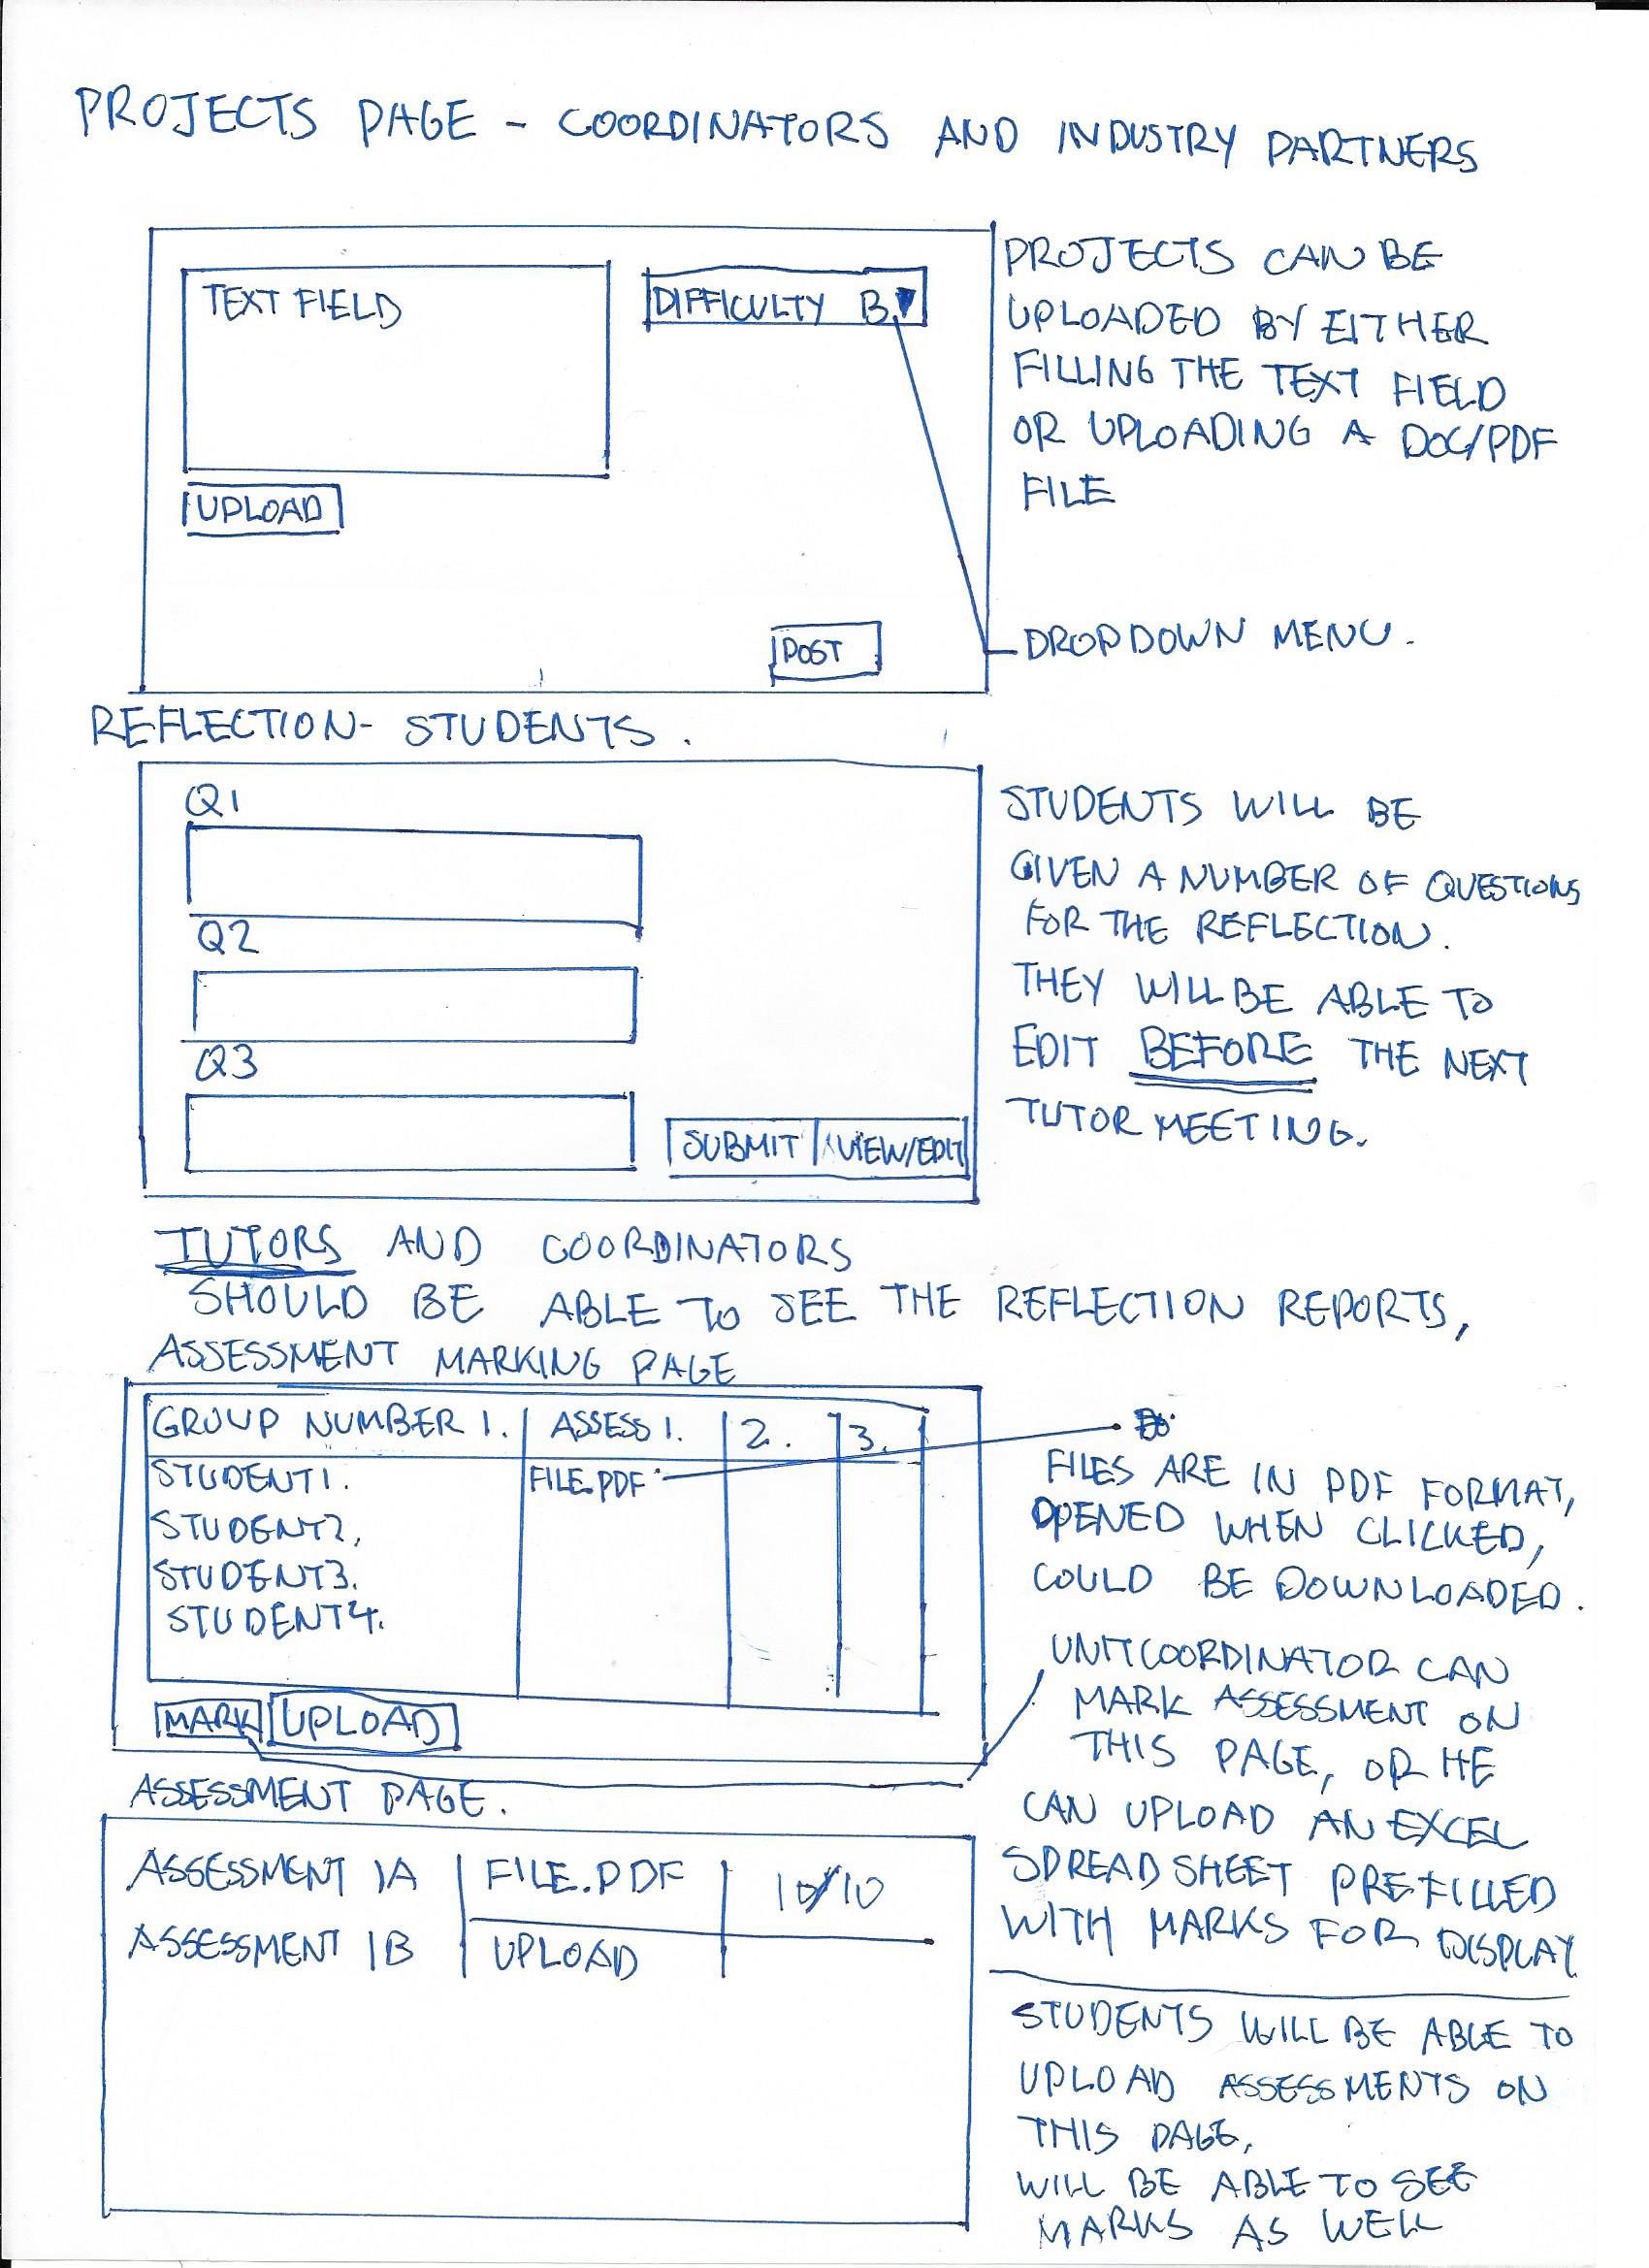 PROJECTS PAGE - COORDINATORS AND INDUSTRY PARTNERS
TEXT FIELD
DIFFICULTY B
UPLOAD
POST
PROJECTS CAN BE
UPLOADED BY EITHER
FILLING THE TEXT FIELD
OR UPLOADING A DOC/PDF
FILE
DROPDOWN MENU.
REFLECTION- STUDENTS.
Q1
Q2
Q3
SUBMIT
VIEW/EDIT
STUDENTS WILL BE
GIVEN A NUMBER OF QUESTIONS
FOR THE REFLECTION.
THEY WILL BE ABLE TO
EDIT BEFORE THE NEXT
TUTOR MEETING.
TUTORS AND COORDINATORS
SHOULD BE ABLE TO SEE THE REFLECTION REPORTS,
ASSESSMENT MARKING PAGE
GROUP NUMBER 1. ASSESS 1. 2. 3.
STUDENT1. FILE.PDF
STUDENT2.
STUDENT3.
STUDENT4.
MARK UPLOAD
FILES ARE IN PDF FORMAT,
OPENED WHEN CLICKED,
COULD BE DOWNLOADED.
UNITCOORDINATOR CAN
MARK ASSESSMENT ON
THIS PAGE, OR HE
CAN UPLOAD AN EXCEL
SPREADSHEET PREFILLED
WITH MARKS FOR DISPLAY
ASSESSMENT PAGE.
ASSESSMENT 1A FILE.PDF 10/10
ASSESSMENT 1B UPLOAD
STUDENTS WILL BE ABLE TO
UPLOAD ASSESSMENTS ON
THIS PAGE,
WILL BE ABLE TO SEE
MARKS AS WELL